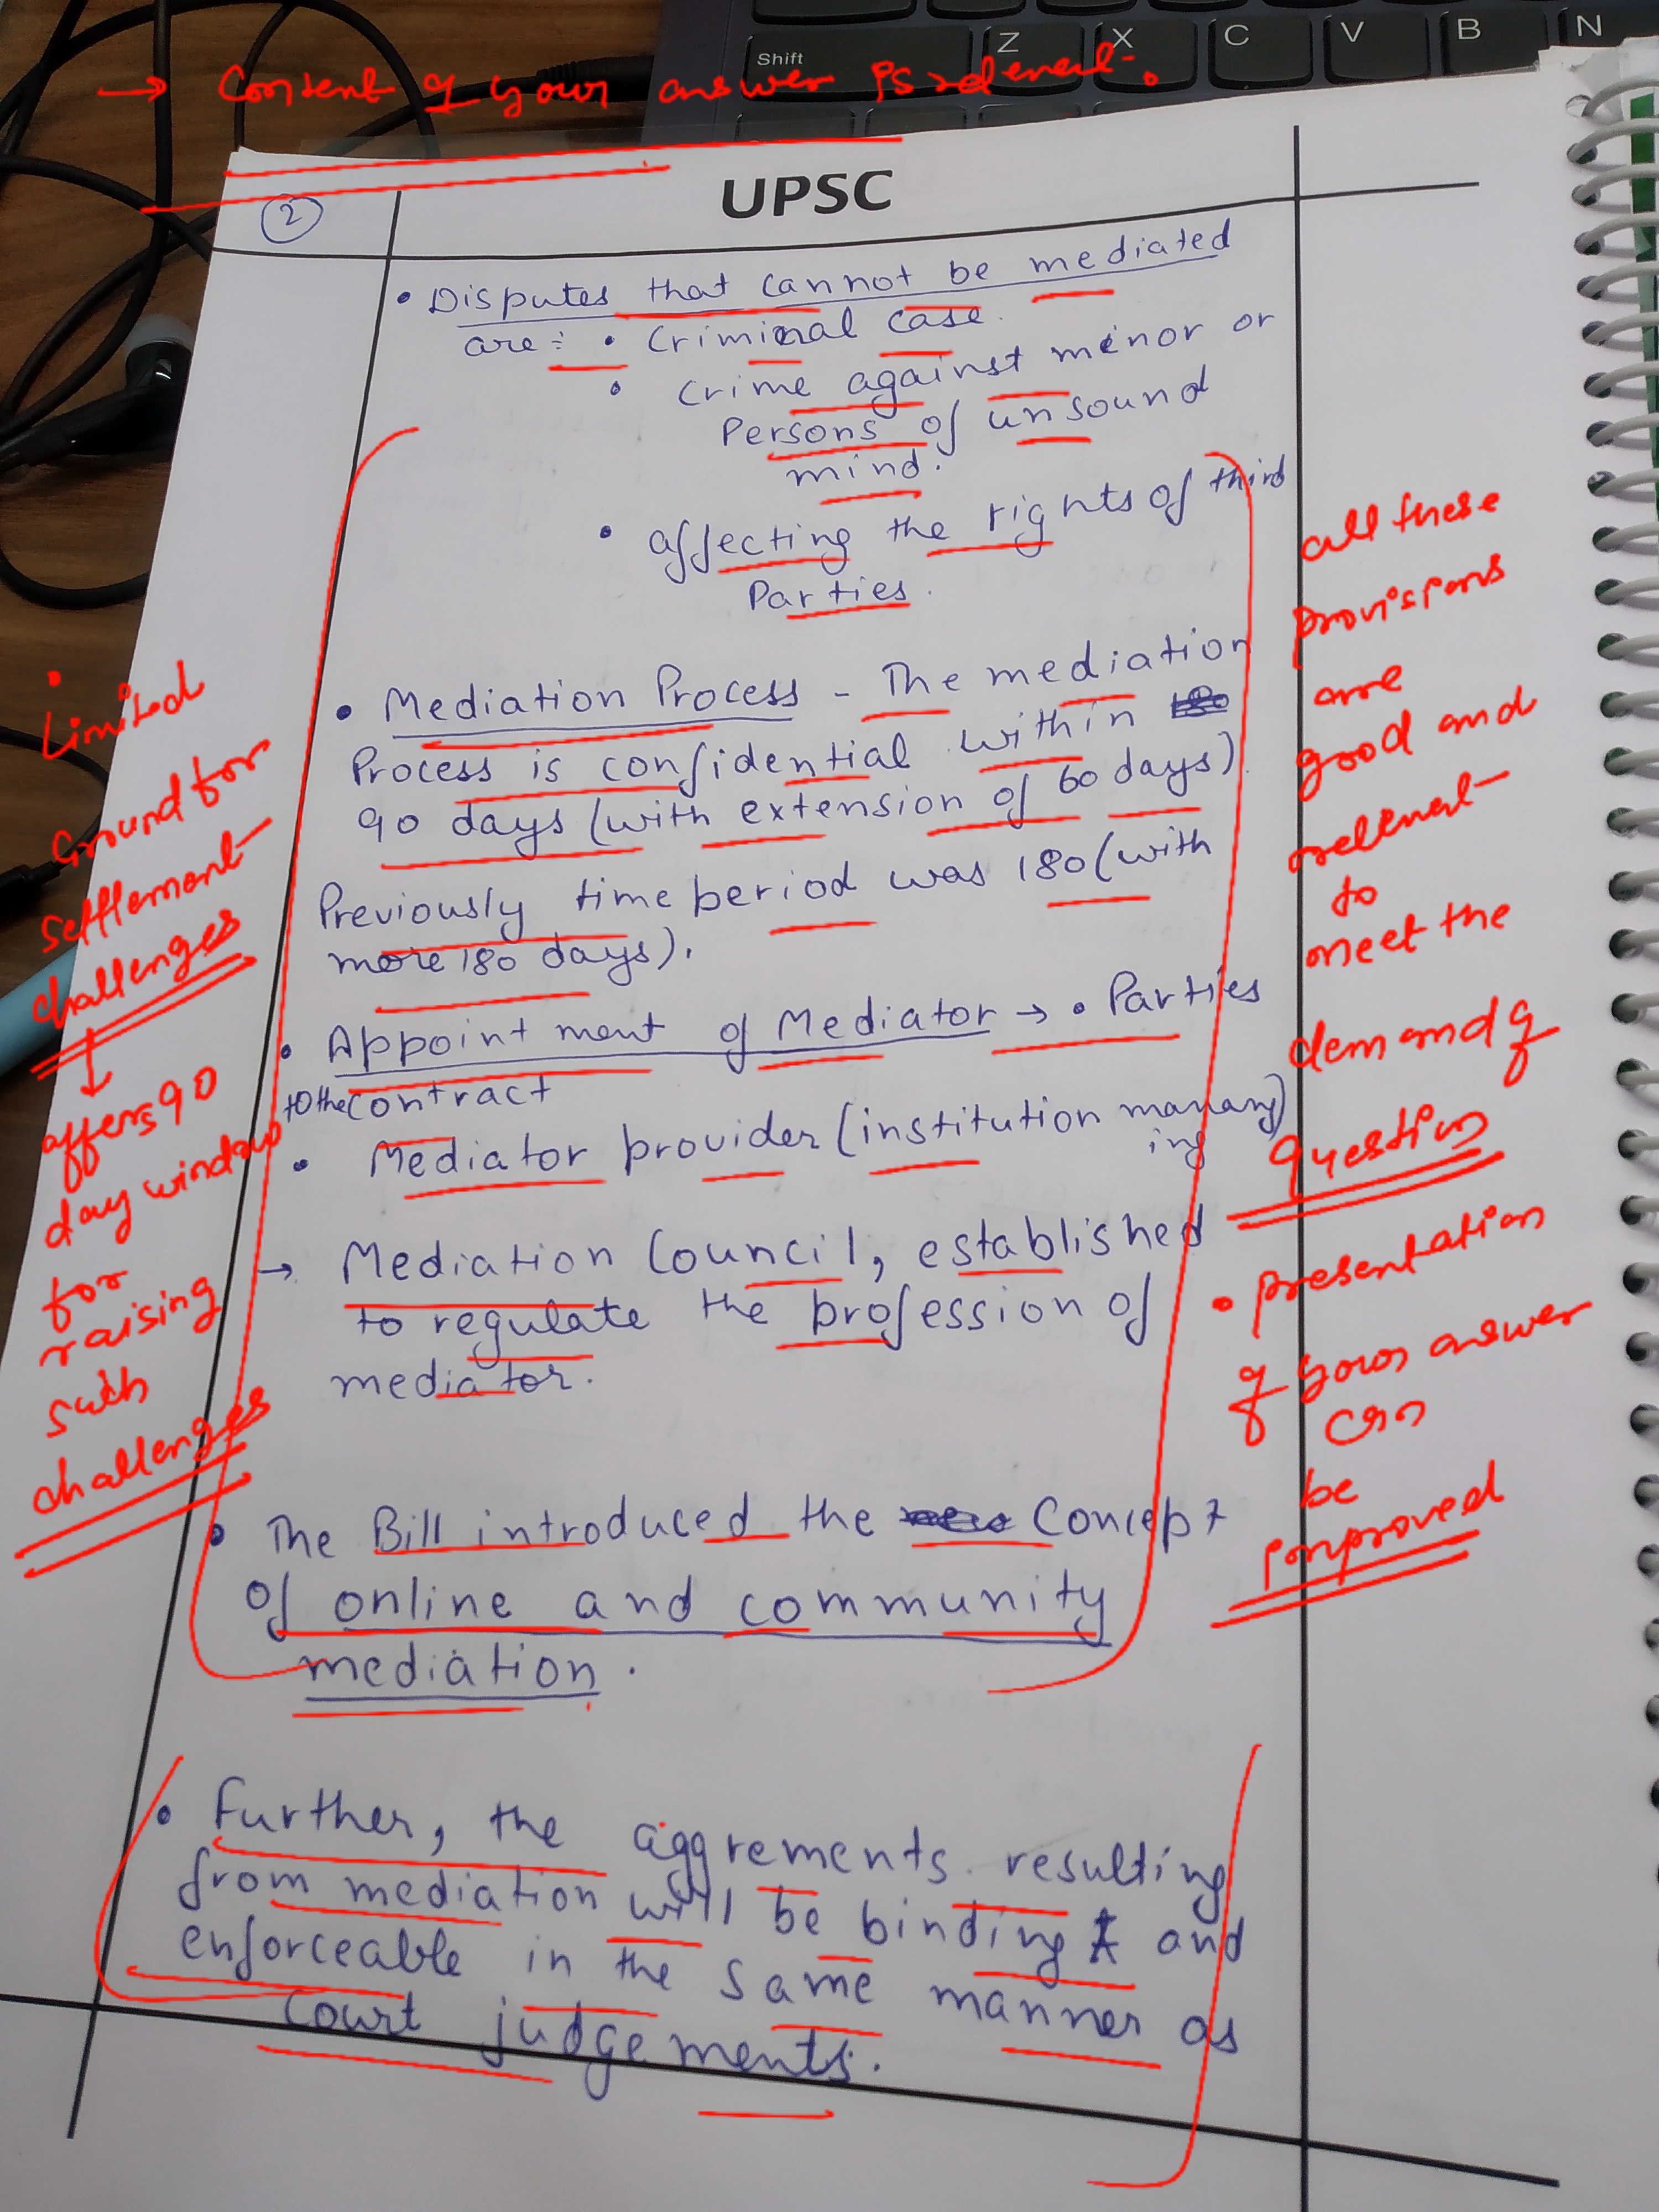 Shift
Z
X
C
V
B
N
→ Content of your answer is relevant.
UPSC
2
• Disputes that cannot be mediated
are :- • Criminal case.
• Crime against minor or
Persons of unsound
mind.
• affecting the rights of third
Parties.
• Mediation Process - The mediation
Process is confidential within
90 days (with extension of 60 days).
Previously time period was 180 (with
more 180 days).
• Appointment of Mediator → • Parties
to the contract
• Mediator provider (institution
→ Mediation Council, established
to regulate the profession of
mediator.
• The Bill introduced the concept
of online and community
mediation.
• Further, the aggrements resulting
from mediation will be binding and
enforceable in the same manner as
court judgements.
• Limited
Ground for
settlement
challenges
↓
offers 90
day window
for
raising
such
challenges
all these
provisions
are
good and
relevant
to
meet the
demand of
question
• presentation
of your answer
can
be
improved